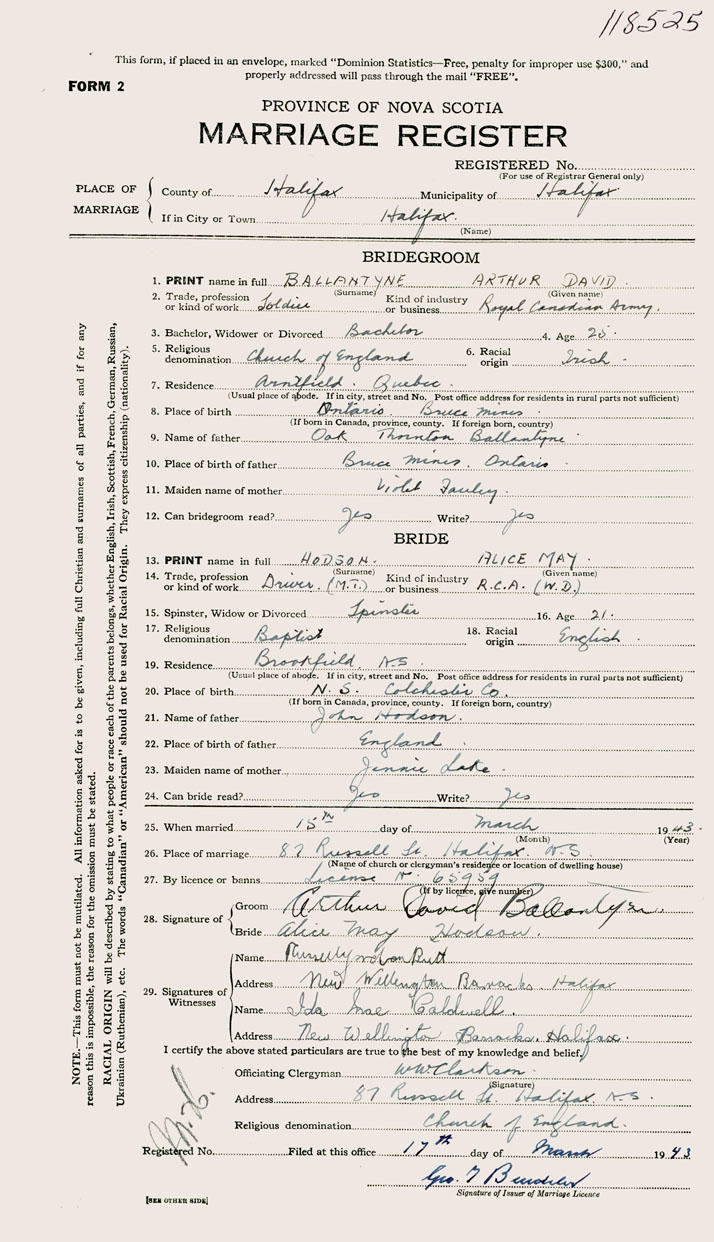 118525
This form, if placed in an envelope, marked "Dominion Statistics—Free, penalty for improper use $300," and
properly addressed will pass through the mail "FREE".
FORM 2
PROVINCE OF NOVA SCOTIA
MARRIAGE REGISTER
REGISTERED No.
(For use of Registrar General only)
PLACE OF MARRIAGE
County of Halifax Municipality of Halifax
If in City or Town Halifax.
(Name)
BRIDEGROOM
1. PRINT name in full BALLANTYNE ARTHUR DAVID.
(Surname) (Given name)
2. Trade, profession or kind of work Soldier Kind of industry or business Royal Canadian Army.
3. Bachelor, Widower or Divorced Bachelor 4. Age 25.
5. Religious denomination Church of England 6. Racial origin Irish.
7. Residence Arntfield. Quebec.
(Usual place of abode. If in city, street and No. Post office address for residents in rural parts not sufficient)
8. Place of birth Ontario. Bruce mines.
(If born in Canada, province, county. If foreign born, country)
9. Name of father Oak Thornton Ballantyne
10. Place of birth of father Bruce mines. Ontario.
11. Maiden name of mother Violet
12. Can bridegroom read? Yes Write? Yes
BRIDE
13. PRINT name in full HODSON. ALICE MAY.
(Surname) (Given name)
14. Trade, profession or kind of work Driver. (M.T.) Kind of industry or business R.C.A. (W.D.)
15. Spinster, Widow or Divorced Spinster 16. Age 21.
17. Religious denomination Baptist 18. Racial origin English.
19. Residence Brookfield N.S.
(Usual place of abode. If in city, street and No. Post office address for residents in rural parts not sufficient)
20. Place of birth N.S. Colchester Co.
(If born in Canada, province, county. If foreign born, country)
21. Name of father John Hodson.
22. Place of birth of father England
23. Maiden name of mother Jennie Lake
24. Can bride read? Yes Write? Yes
25. When married 15th day of March 1943.
(Month) (Year)
26. Place of marriage 87 Russell St. Halifax N.S.
(Name of church or clergyman's residence or location of dwelling house)
27. By licence or banns License No. 65959
(If by licence, give number)
28. Signature of
Groom Arthur David Ballantyne.
Bride Alice May Hodson.
29. Signatures of Witnesses
Name
Address New Wellington Barracks. Halifax
Name Ida Mae Caldwell.
Address New Wellington Barracks. Halifax.
I certify the above stated particulars are true to the best of my knowledge and belief,
Officiating Clergyman W W Clarkson.
(Signature)
Address 87 Russell St. Halifax N.S.
Religious denomination Church of England.
Registered No. Filed at this office 17th day of March 1943
Geo.
Signature of Issuer of Marriage Licence
[SEE OTHER SIDE]
NOTE.—This form must not be mutilated. All information asked for is to be given, including full Christian and surnames of all parties, and if for any
reason this is impossible, the reason for the omission must be stated.
RACIAL ORIGIN will be described by stating to what people or race each of the parents belongs, whether English, Irish, Scottish, French, German, Russian,
Ukrainian (Ruthenian), etc. The words "Canadian" or "American" should not be used for Racial Origin. They express citizenship (nationality).